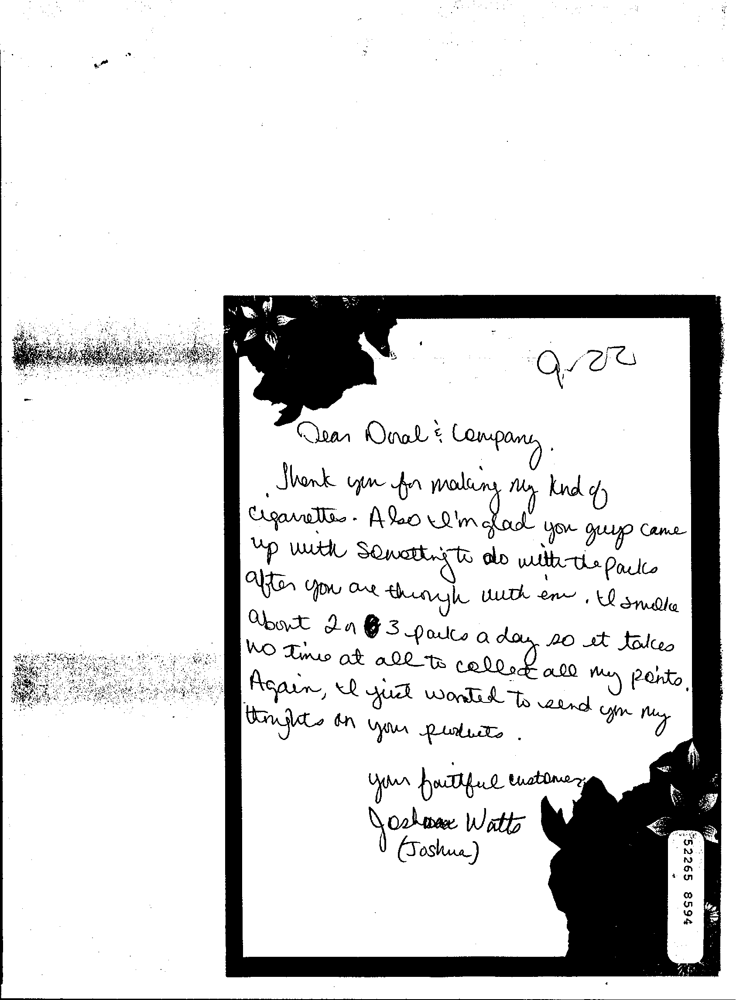 9-22
Dear Doral & Company.
Thank you for making my kind of
cigarettes. Also I'm glad you guys came
up with something to do with the packs
after you are through with em. I smoke
about 2 or 3 packs a day so it takes
no time at all to collect all my points.
Again, I just wanted to send you my
thoughts on your products.
your faithful customer,
Joshua Watts
(Joshua)
52265 8594